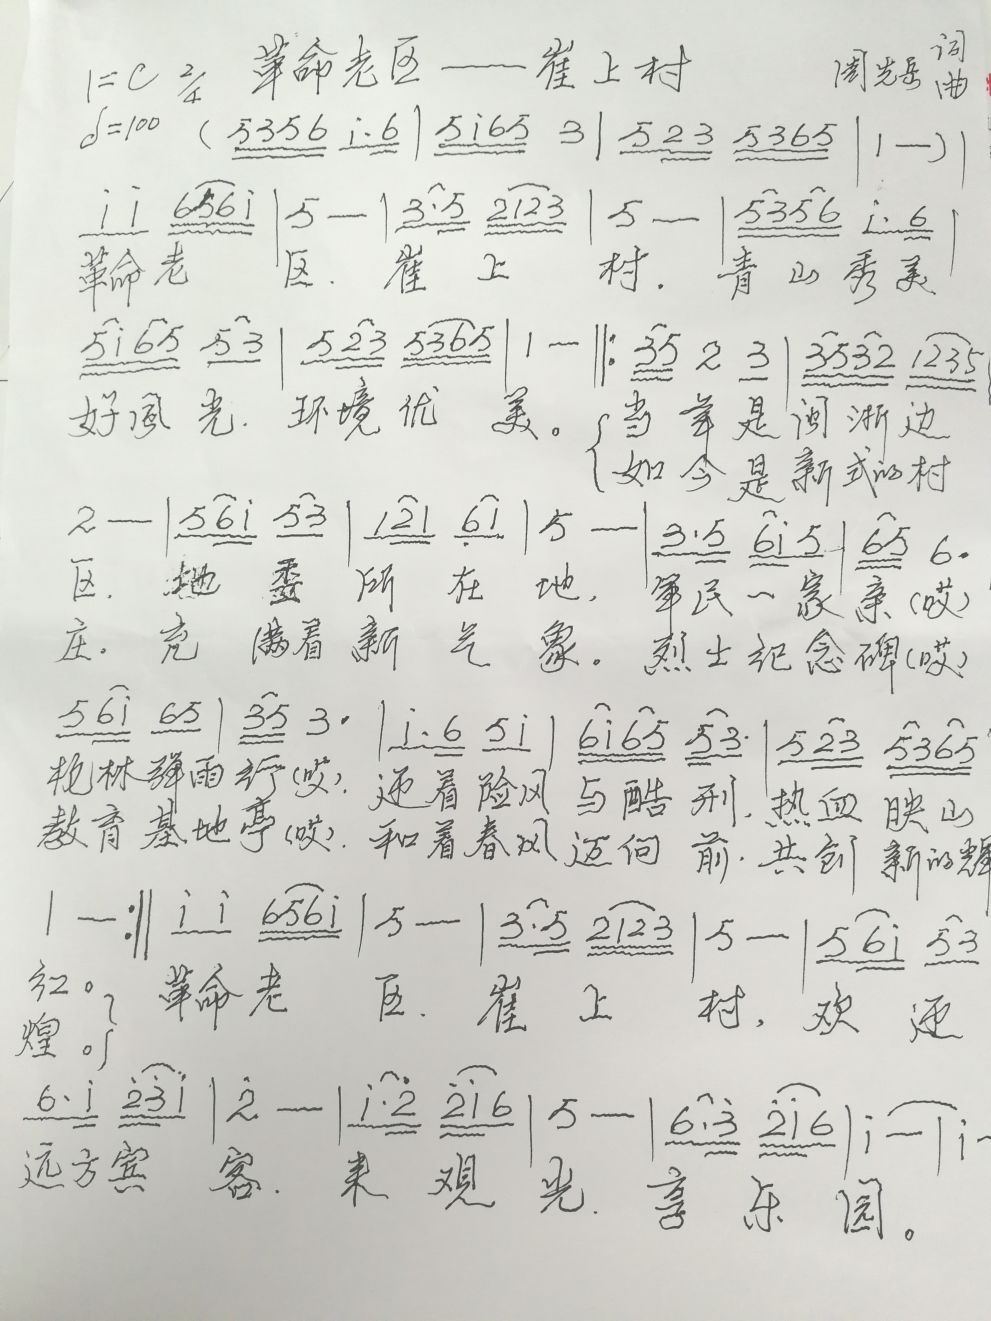 1=C 2/4 革命老区——崔上村 周光岳 词曲
♩=100 (5356 i·6 | 5i65 3 | 523 5365 | 1 —) |
i i 656i | 5 — | 3·5 2123 | 5 — | 5356 i·6 |
革命老 区. 崔 上 村. 青山秀美
5i65 53 | 523 5365 | 1 — ‖: 35 2 3 | 3532 1235
好風光. 环境优 美。 当年是闽浙边
如今是新式的村
2 — | 56i 53 | 121 61 | 5 — | 3·5 6i5 | 65 6·
区. 地委所在地, 军民一家亲(哎)
庄. 充满着新气象。 烈士纪念碑(哎)
56i 65 | 35 3· | i·6 5i | 6i65 53· | 523 5365
枪林弹雨行(哎). 迎着险风与酷刑. 热血映山
教育基地亭(哎). 和着春风迈向前. 共创新的辉
1 — :‖ i i 656i | 5 — | 3·5 2123 | 5 — | 56i 53
红。 革命老 区. 崔 上 村, 欢迎
煌。
6·i 23i | 2 — | i·2 2i6 | 5 — | 6·3 2i6 | i — | i —
远方宾 客. 来观光. 享乐园。